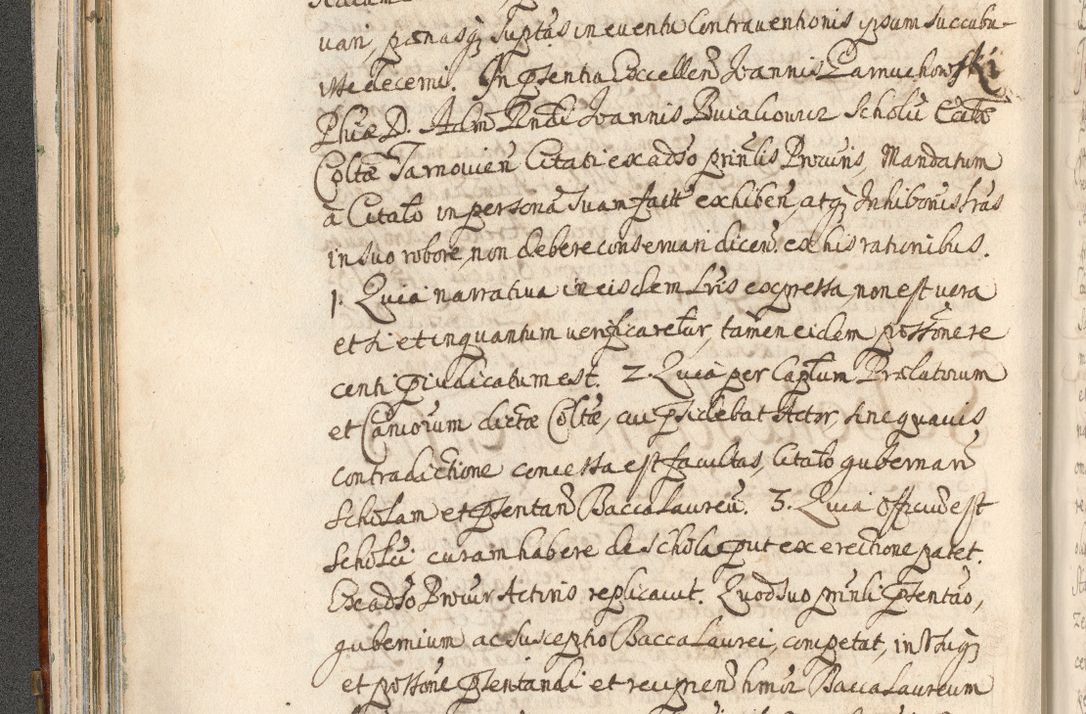 uari, pœnasq; supta͠s in euentu Contrauentionis ipsum succubu-
isse decerni. In p͠sentia Excellen͠ Joannis Zamuchowski
Phiæ D. Adm͠ R͠ndi Joannis Buialiowicz Scholæ Eccl͠æ
Colt͠æ Tarnouien͠ Citati ex aduso prin͠lis Procuris, Mandatum
à Citato in persona suam fact͠ exhiben͠, atq; Inhibonis l͠ras
in suo robore, non debere conseruari dicen͠, ex his rationibus.
1. Quia narratiua in eisdem L͠ris expressa, non est uera
et si et inquantum uerificaretur, tamen eidem poss͠one re
centi p͠iudicatum est. 2. Quia per Capl͠um Prælatorum
et Can͠icorum dictæ Colt͠æ, cui p͠sidebat Actor, sine quauis
contradictione concessa est facultas, Citato gubernan͠
Scholam et p͠sentan͠ Baccalaureu͠. 3. Quia Officiu͠ est
Scholci curam habere de schola, put ex erectione patet.
Ex aduso Procur Actoris replicauit. Quod suo prin͠li p͠sentao͠,
gubernium ac susceptio Baccalaurei, competat, in Usuq;
et poss͠one p͠sentandi et recipien͠ h͠mo͠i Baccalaureum